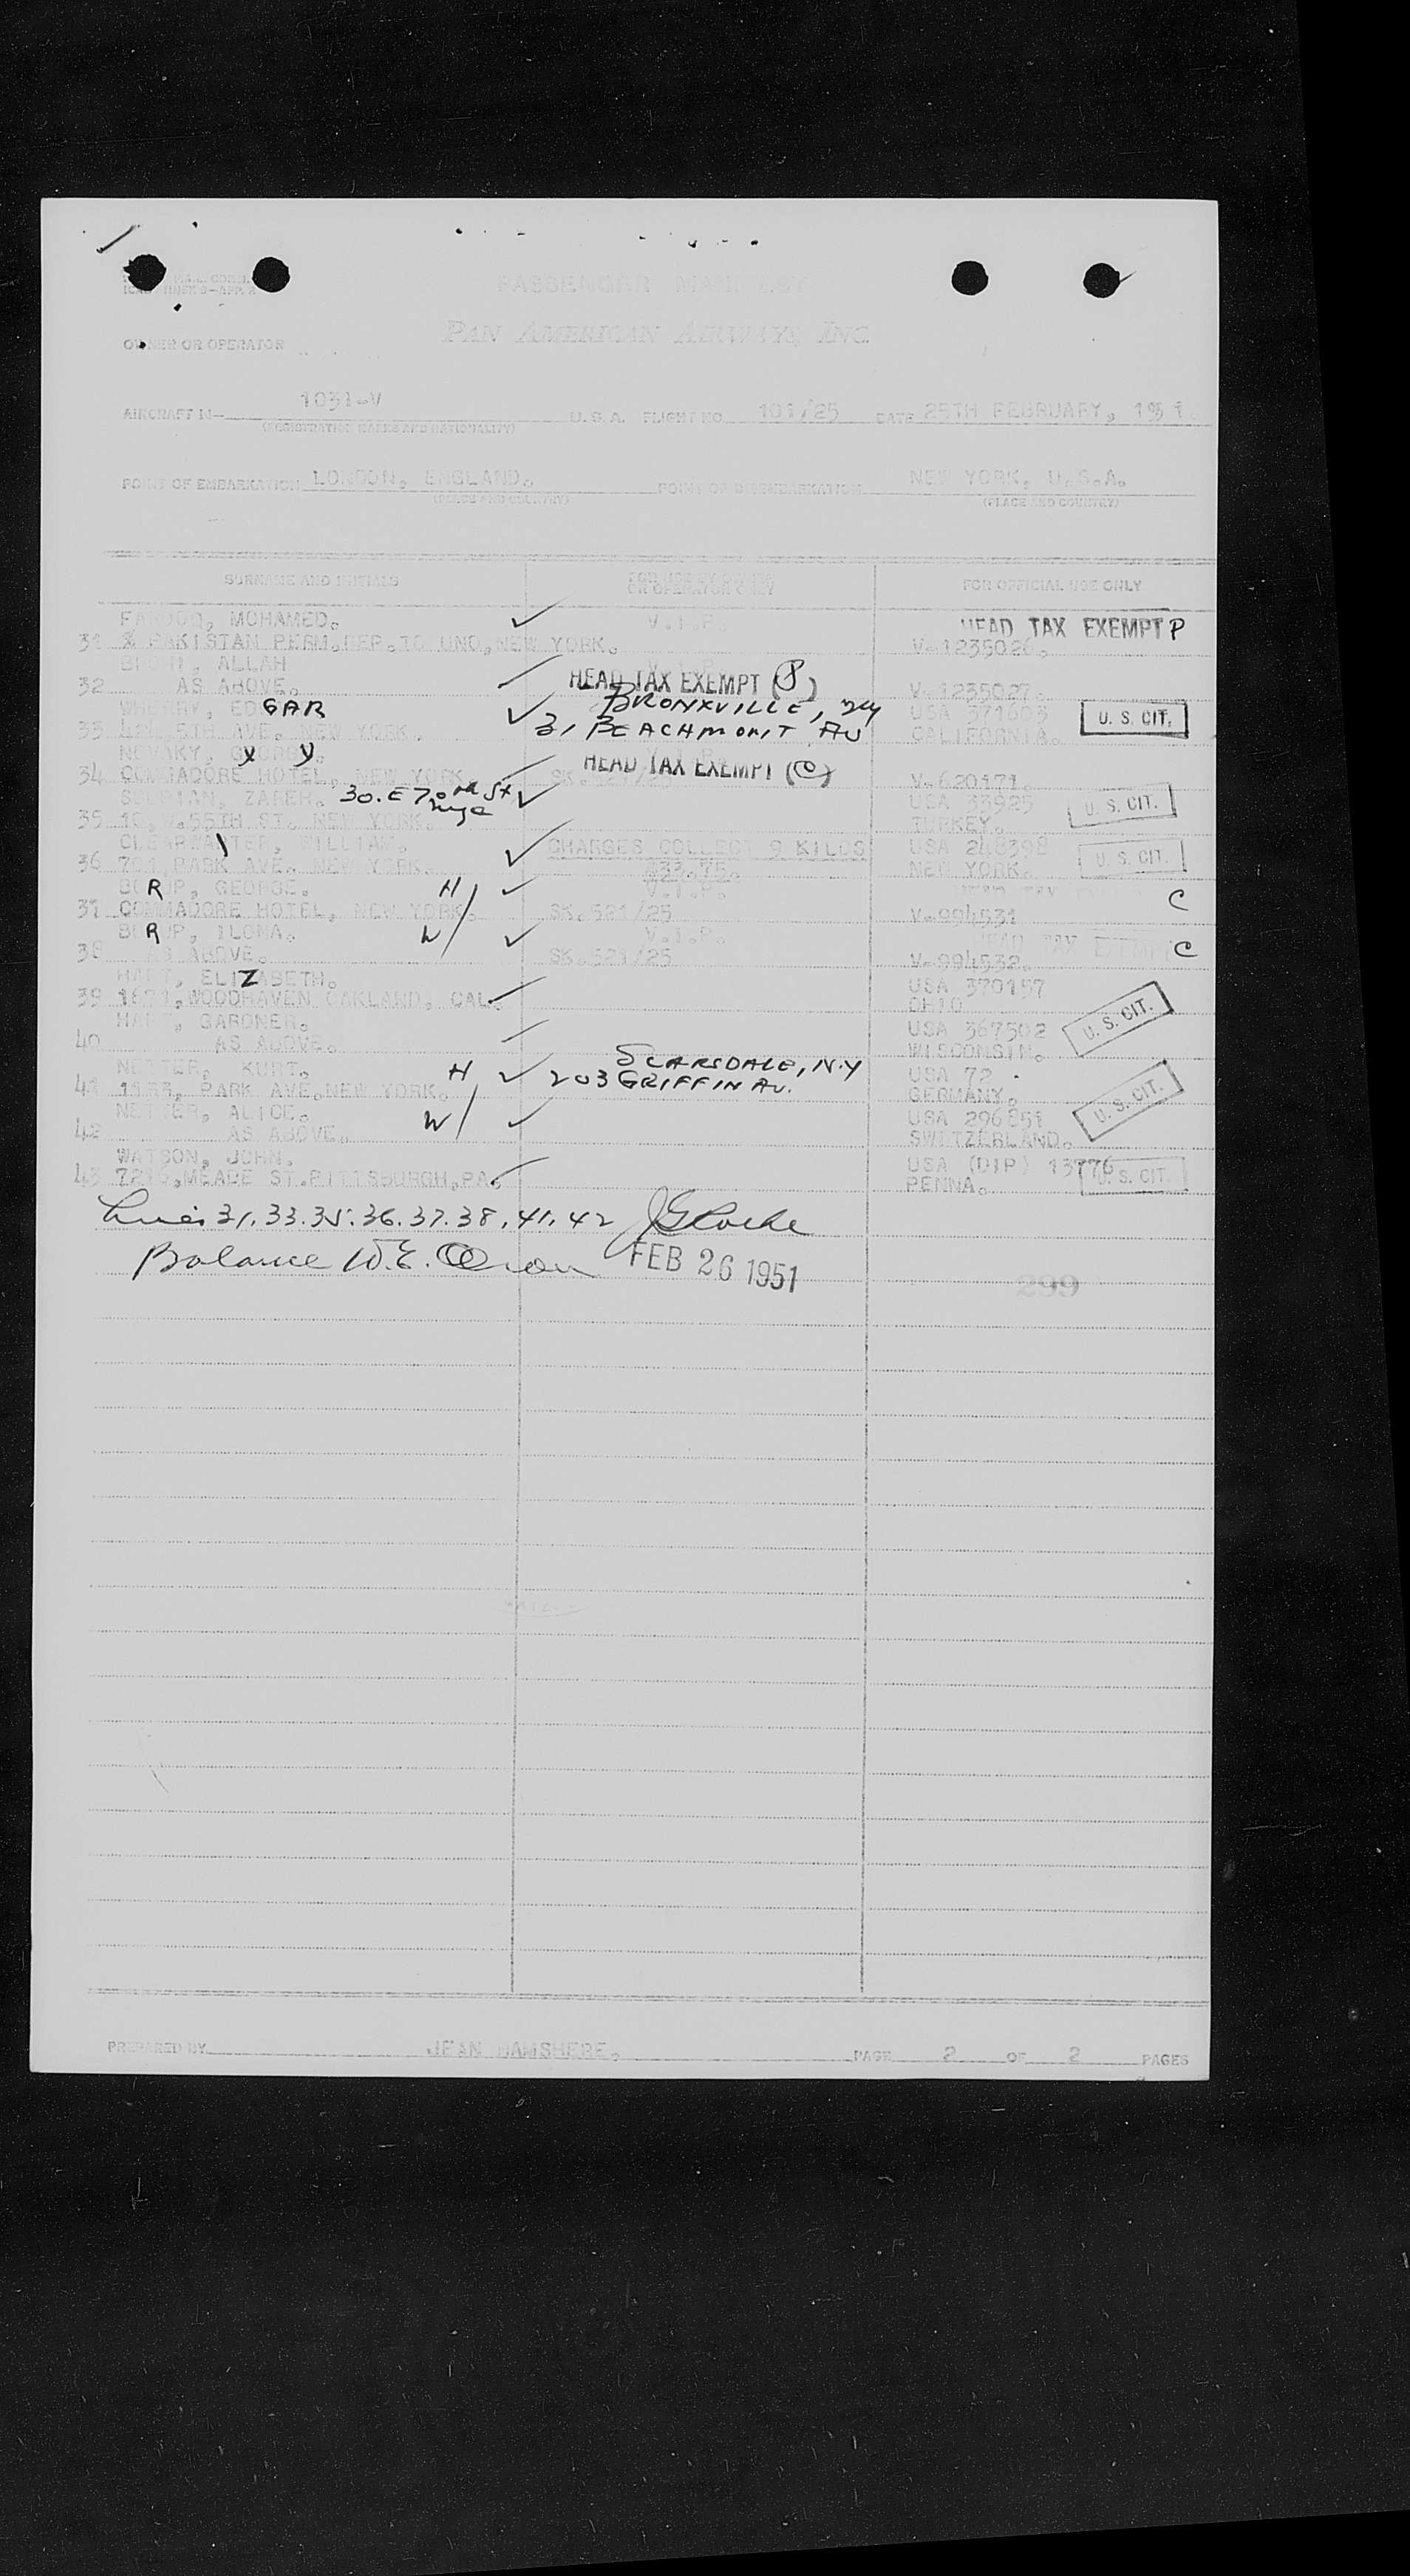 PASSENGER MANIFEST
PAN AMERICAN AIRWAYS, INC.
OWNER OR OPERATOR
1031-V
AIRCRAFT U.S.A. FLIGHT NO. 101/25 DATE 25TH FEBRUARY, 1951.
(REGISTRATION MARKS AND NATIONALITY)
POINT OF EMBARKATION LONDON, ENGLAND. POINT OF DISEMBARKATION NEW YORK, U.S.A.
(PLACE AND COUNTRY) (PLACE AND COUNTRY)
SURNAME AND INITIALS FOR USE BY OWNER OR OPERATOR ONLY FOR OFFICIAL USE ONLY
FAROOQ, MOHAMED. V.I.P. HEAD TAX EXEMPT P
31 % PAKISTAN PERM.REP.TO UNO,NEW YORK. V-1235026.
ALLAH V.I.P.
32 AS ABOVE. HEAD TAX EXEMPT V-1235027.
WHERRY, EDGAR BRONXVILLE, NY USA 371603 U. S. CIT.
33 5TH AVE. NEW YORK. 31 BEACHMONT AV CALIFORNIA.
GEORGE. y y V.I.P.
34 COMMADORE HOTEL, NEW YORK. HEAD TAX EXEMPT (C) V-620171.
ZAREH. 30.E 70th St nyc USA 33925 U. S. CIT.
35 55TH ST. NEW YORK. TURKEY.
CLEARWATER, WILLIAM. CHARGES COLLECT 9 KILOS USA 248398 U. S. CIT.
36 PARK AVE. NEW YORK. $33.75. NEW YORK.
BORUP, GEORGE. H V.I.P. HEAD TAX C
37 COMMADORE HOTEL, NEW YORK. SK.521/25 V-994531
BORUP, ILONA. W V.I.P. HEAD TAX EXEMPT C
38 AS ABOVE. SK.521/25 V-994532.
HART, ELIZABETH. USA 370157
39 WOODHAVEN OAKLAND, CAL. OHIO
HART, GARDNER. USA 367502 U. S. CIT.
40 AS ABOVE. WISCONSIN.
NETTER, KURT. H SCARSDALE, N.Y USA 72
41 PARK AVE.NEW YORK. 203 GRIFFIN AV. GERMANY.
NETTER, ALICE. W USA 296851 U. S. CIT.
42 AS ABOVE. SWITZERLAND.
WATSON, JOHN. USA (DIP) 13776
43 MEADE ST.PITTSBURGH,PA. PENNA. U. S. CIT.
Lines 31.33.35.36.37.38.41.42
Balance W.E. FEB 26 1951
299
PREPARED BY JEAN HAMSHERE. PAGE 2 OF 2 PAGES